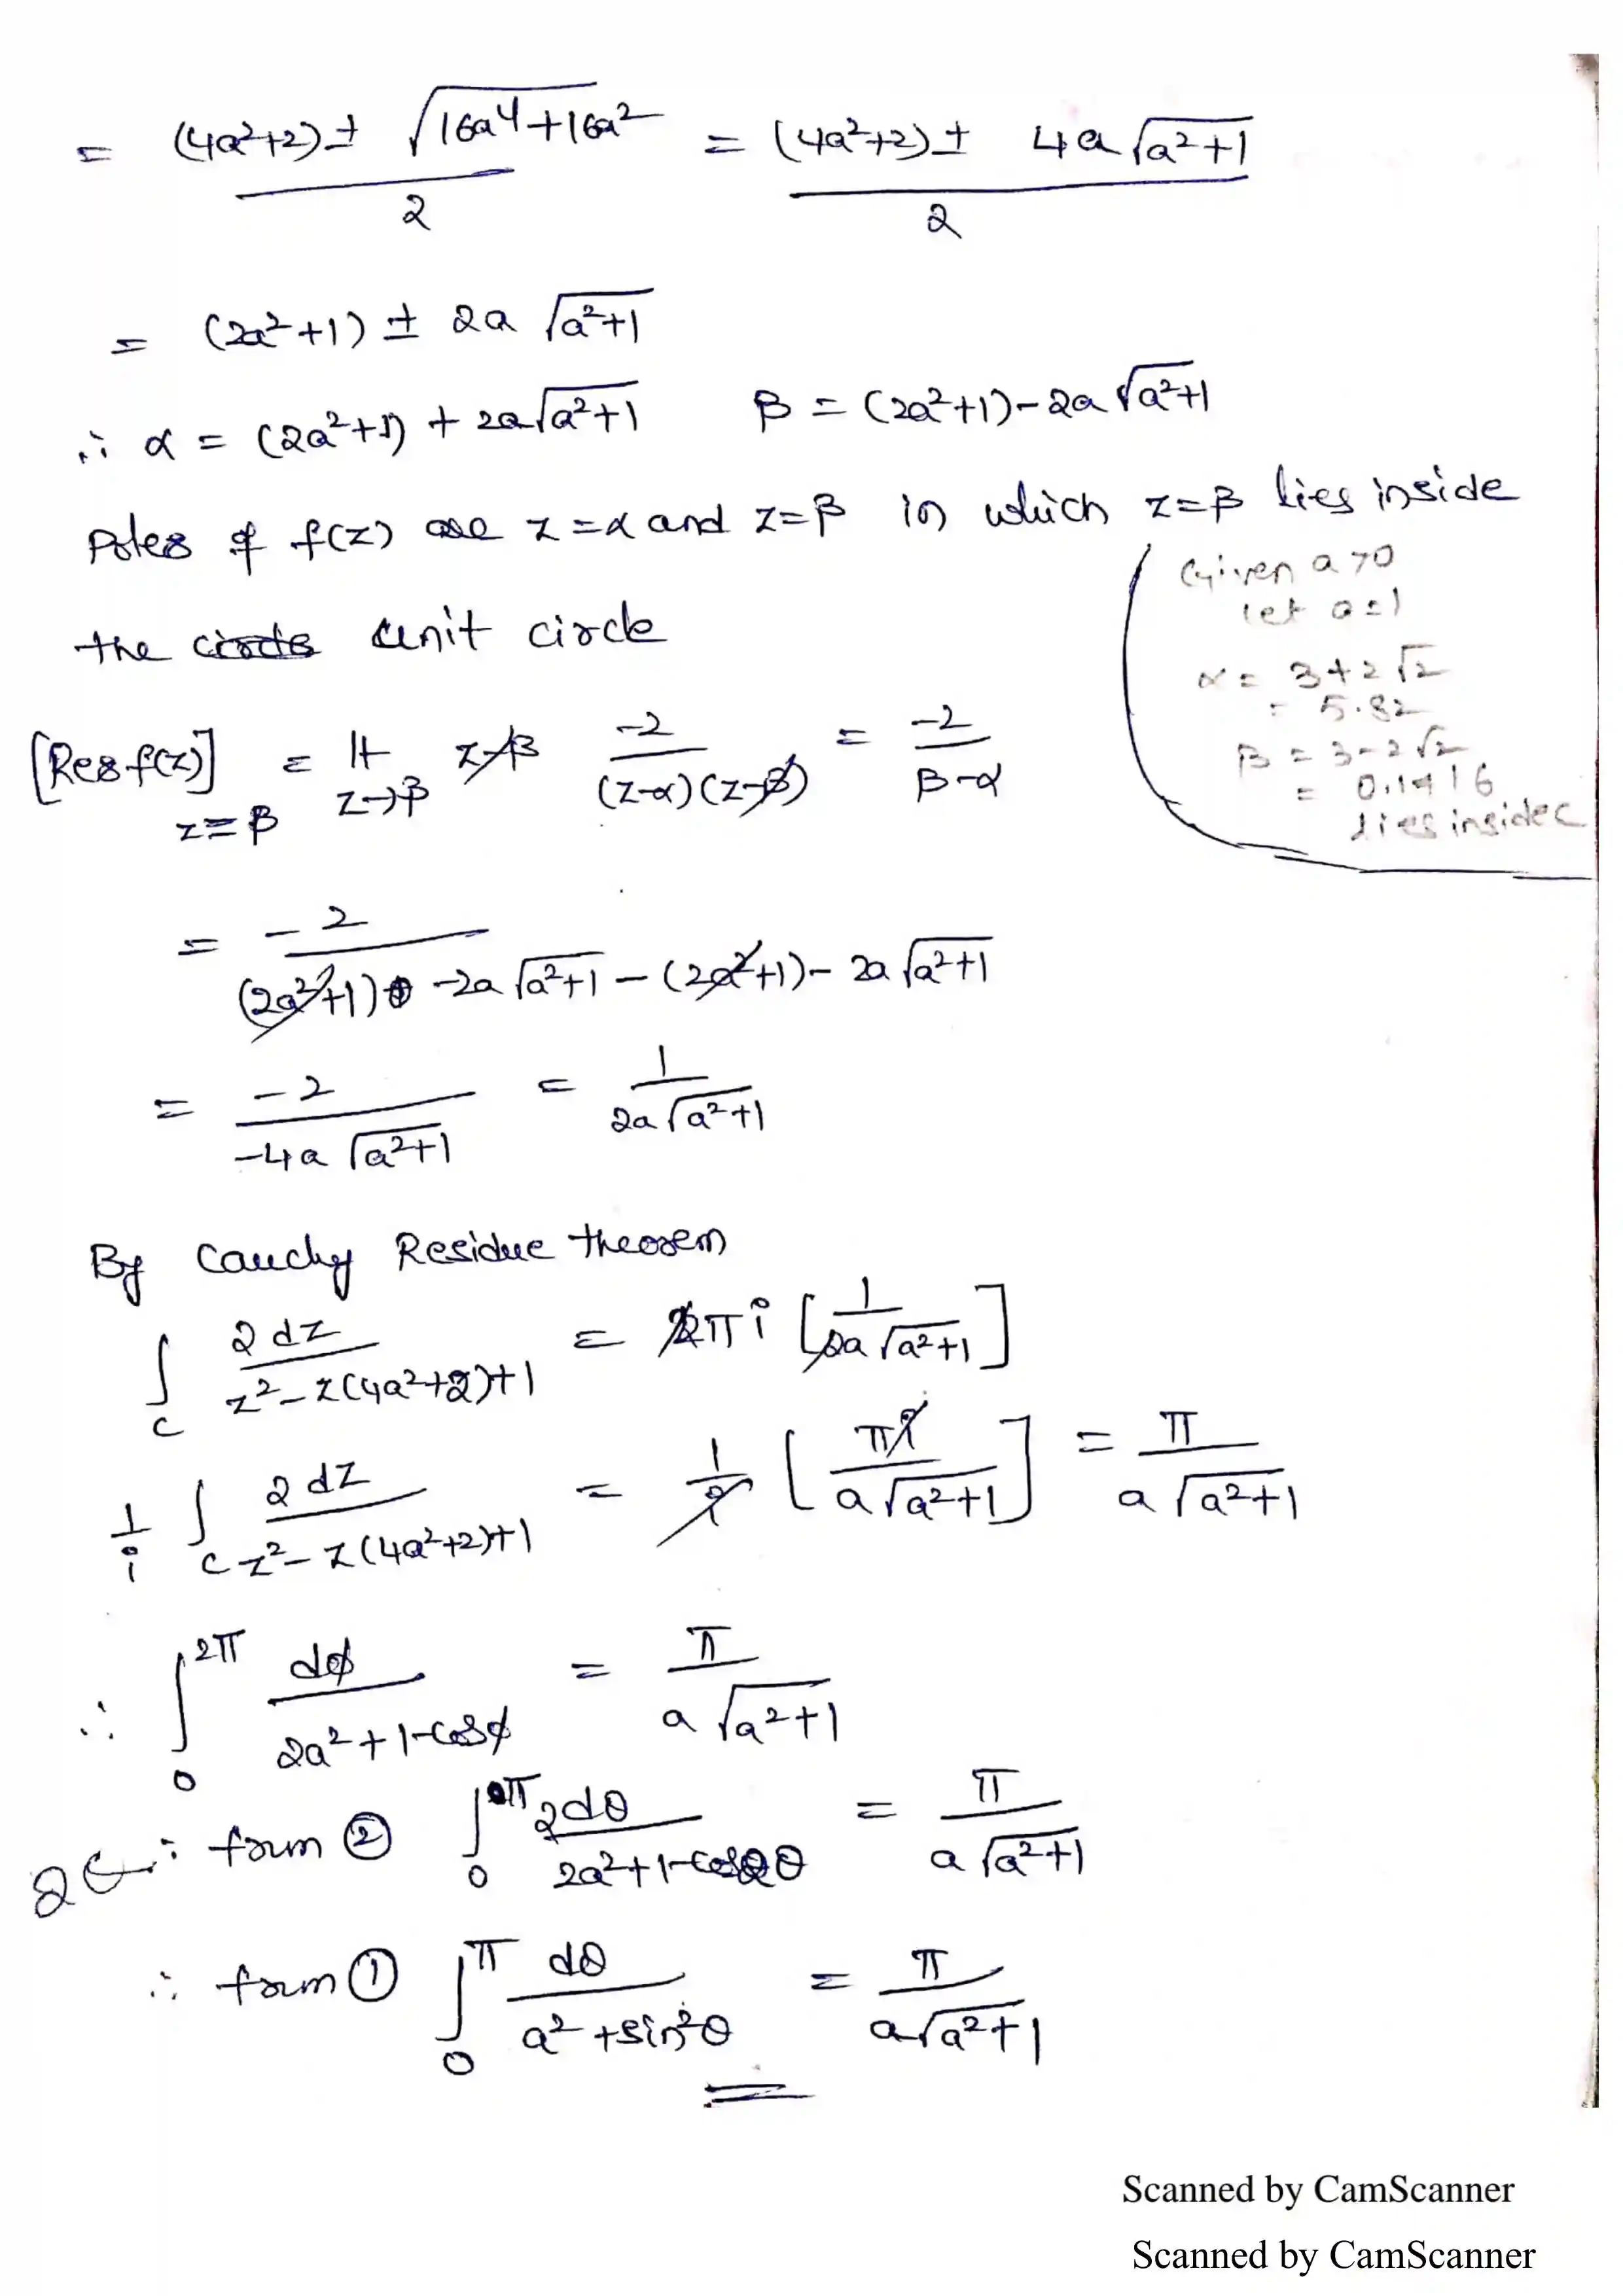 = (4a²+2) ± √16a⁴+16a² / 2 = (4a²+2) ± 4a √a²+1 / 2
= (2a²+1) ± 2a √a²+1
∴ α = (2a²+1) + 2a√a²+1 β = (2a²+1) - 2a √a²+1
Poles of f(z) are z = α and z = β in which z = β lies inside
the unit circle
Given a>0
let a=1
α = 3+2√2
= 5.82
β = 3-2√2
= 0.1716
lies inside c
[Res f(z)] z=β = lt z→β z-β -2 / (z-α)(z-β) = -2 / β-α
= -2 / (2a²+1) -2a √a²+1 - (2a²+1) - 2a √a²+1
= -2 / -4a √a²+1 = 1 / 2a √a²+1
By Cauchy Residue theorem
∫c 2dz / z²-z(4a²+2)+1 = 2πi [1 / 2a √a²+1]
1/i ∫c 2dz / z²-z(4a²+2)+1 = 1/i [πi / a √a²+1] = π / a √a²+1
∴ ∫₀^2π dφ / 2a²+1-cosφ = π / a √a²+1
∴ form ② ∫₀^π 2dθ / 2a²+1-cos2θ = π / a √a²+1
∴ form ① ∫₀^π dθ / a²+sin²θ = π / a√a²+1
Scanned by CamScanner
Scanned by CamScanner